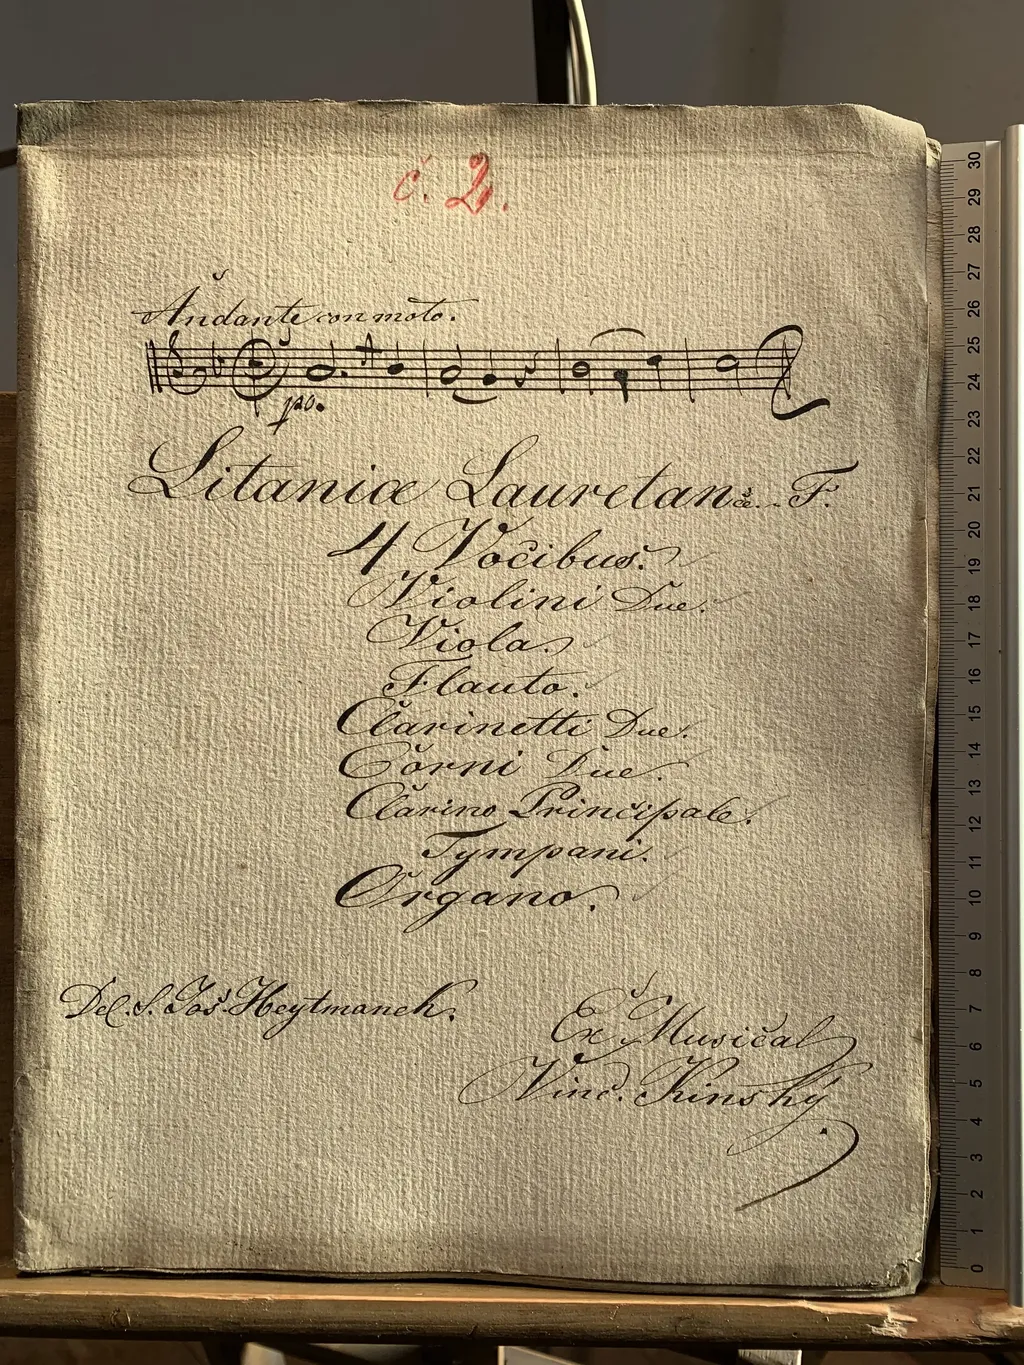 č. 2.
Andante con moto.
po.
Litaniæ Lauretanæ. F.
4 Vocibus.
Violini Due.
Viola.
Flauto.
Clarinetti Due.
Corni Due.
Clarino Principale.
Tympani.
Organo.
Del. S. Jos. Heytmanek.
Ex Musical
Vinc. Kinský
30
29
28
27
26
25
24
23
22
21
20
19
18
17
16
15
14
13
12
11
10
9
8
7
6
5
4
3
2
1
0